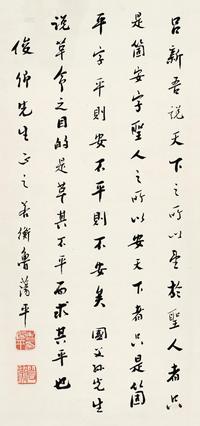 吕新吾说天下之所以望於聖人者只
是箇安字聖人之所以安天下者只是箇
平字平則安不平則不安矣 國父孙先生
说革命之目的是革其不平而求其平也
俊師先生正之 姜衡魯蕩平